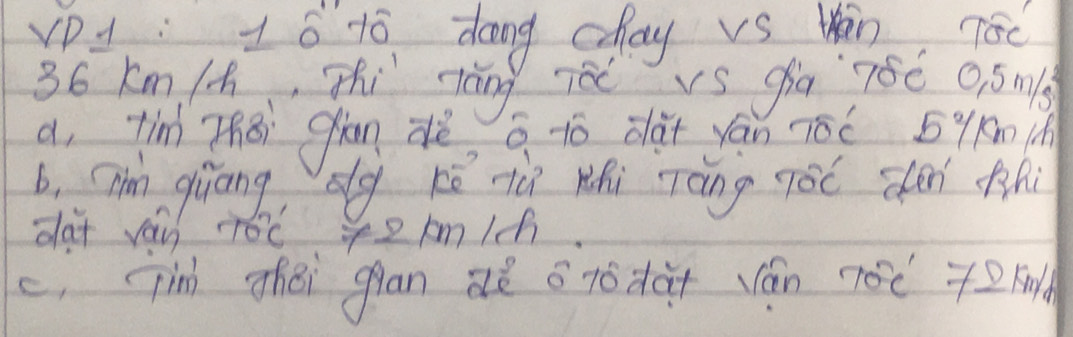 VD1 : 1 ô tô đang chạy vs vận tốc
36 km/h, thì tăng tốc vs gia tốc 0,5m/s
a, tìm thời gian để ô tô đạt vận tốc 54km/h
b, Tìm quãng đg kể từ khi tăng tốc đến khi
đạt vận tốc 72 km/h.
c, Tìm thời gian để ô tô đạt vận tốc 72km/h